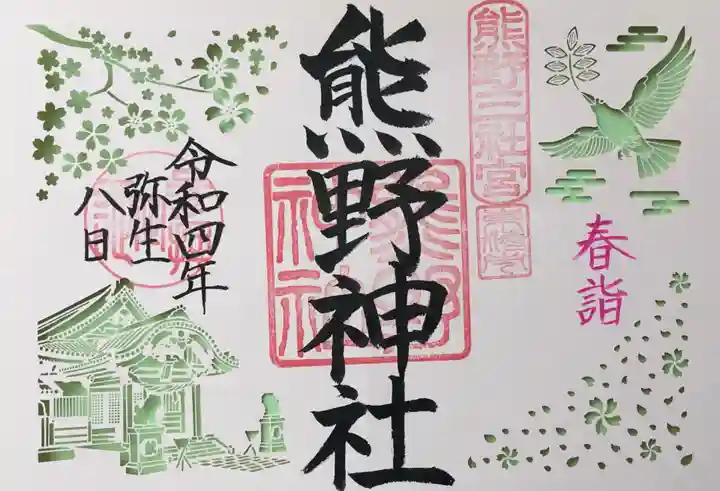 熊野三社宮
春詣
熊野神社
熊野
神社
令和四年
弥生
八日